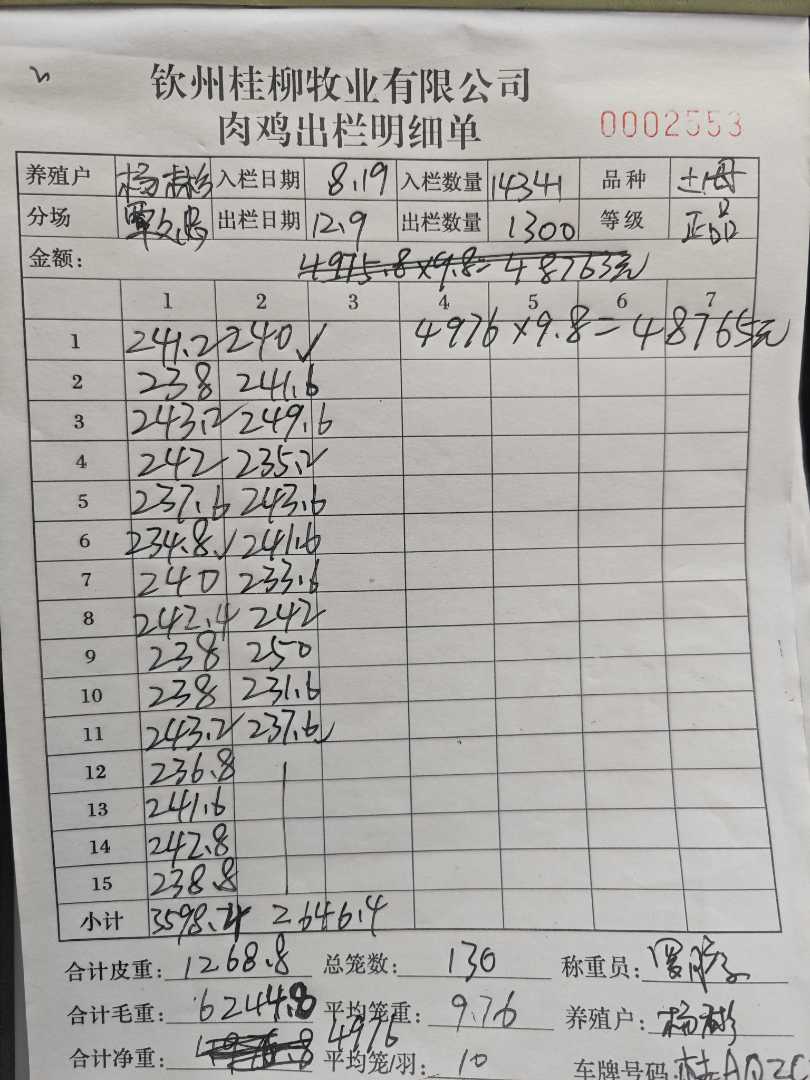 钦州桂柳牧业有限公司
肉鸡出栏明细单 0002553
养殖户 杨彬 入栏日期 8.19 入栏数量 14341 品种 土母
分场 出栏日期 12.9 出栏数量 1300 等级 正品
金额: 4975.8×9.8=48763元
1 2 3 4 5 6 7
4976×9.8=48765元
1 241.2 240
2 238 241.6
3 243.2 249.6
4 242 235.2
5 237.6 243.6
6 234.8 241.6
7 240 233.6
8 242.4 242
9 238 250
10 238 231.6
11 243.2 237.6
12 236.8
13 241.6
14 242.8
15 238.8
小计 3598.4 2646.4
合计皮重: 1268.8 总笼数: 130 称重员:
合计毛重: 6244.8 平均笼重: 9.76 养殖户: 杨彬
合计净重: 4976 平均笼/羽: 10 车牌号码: